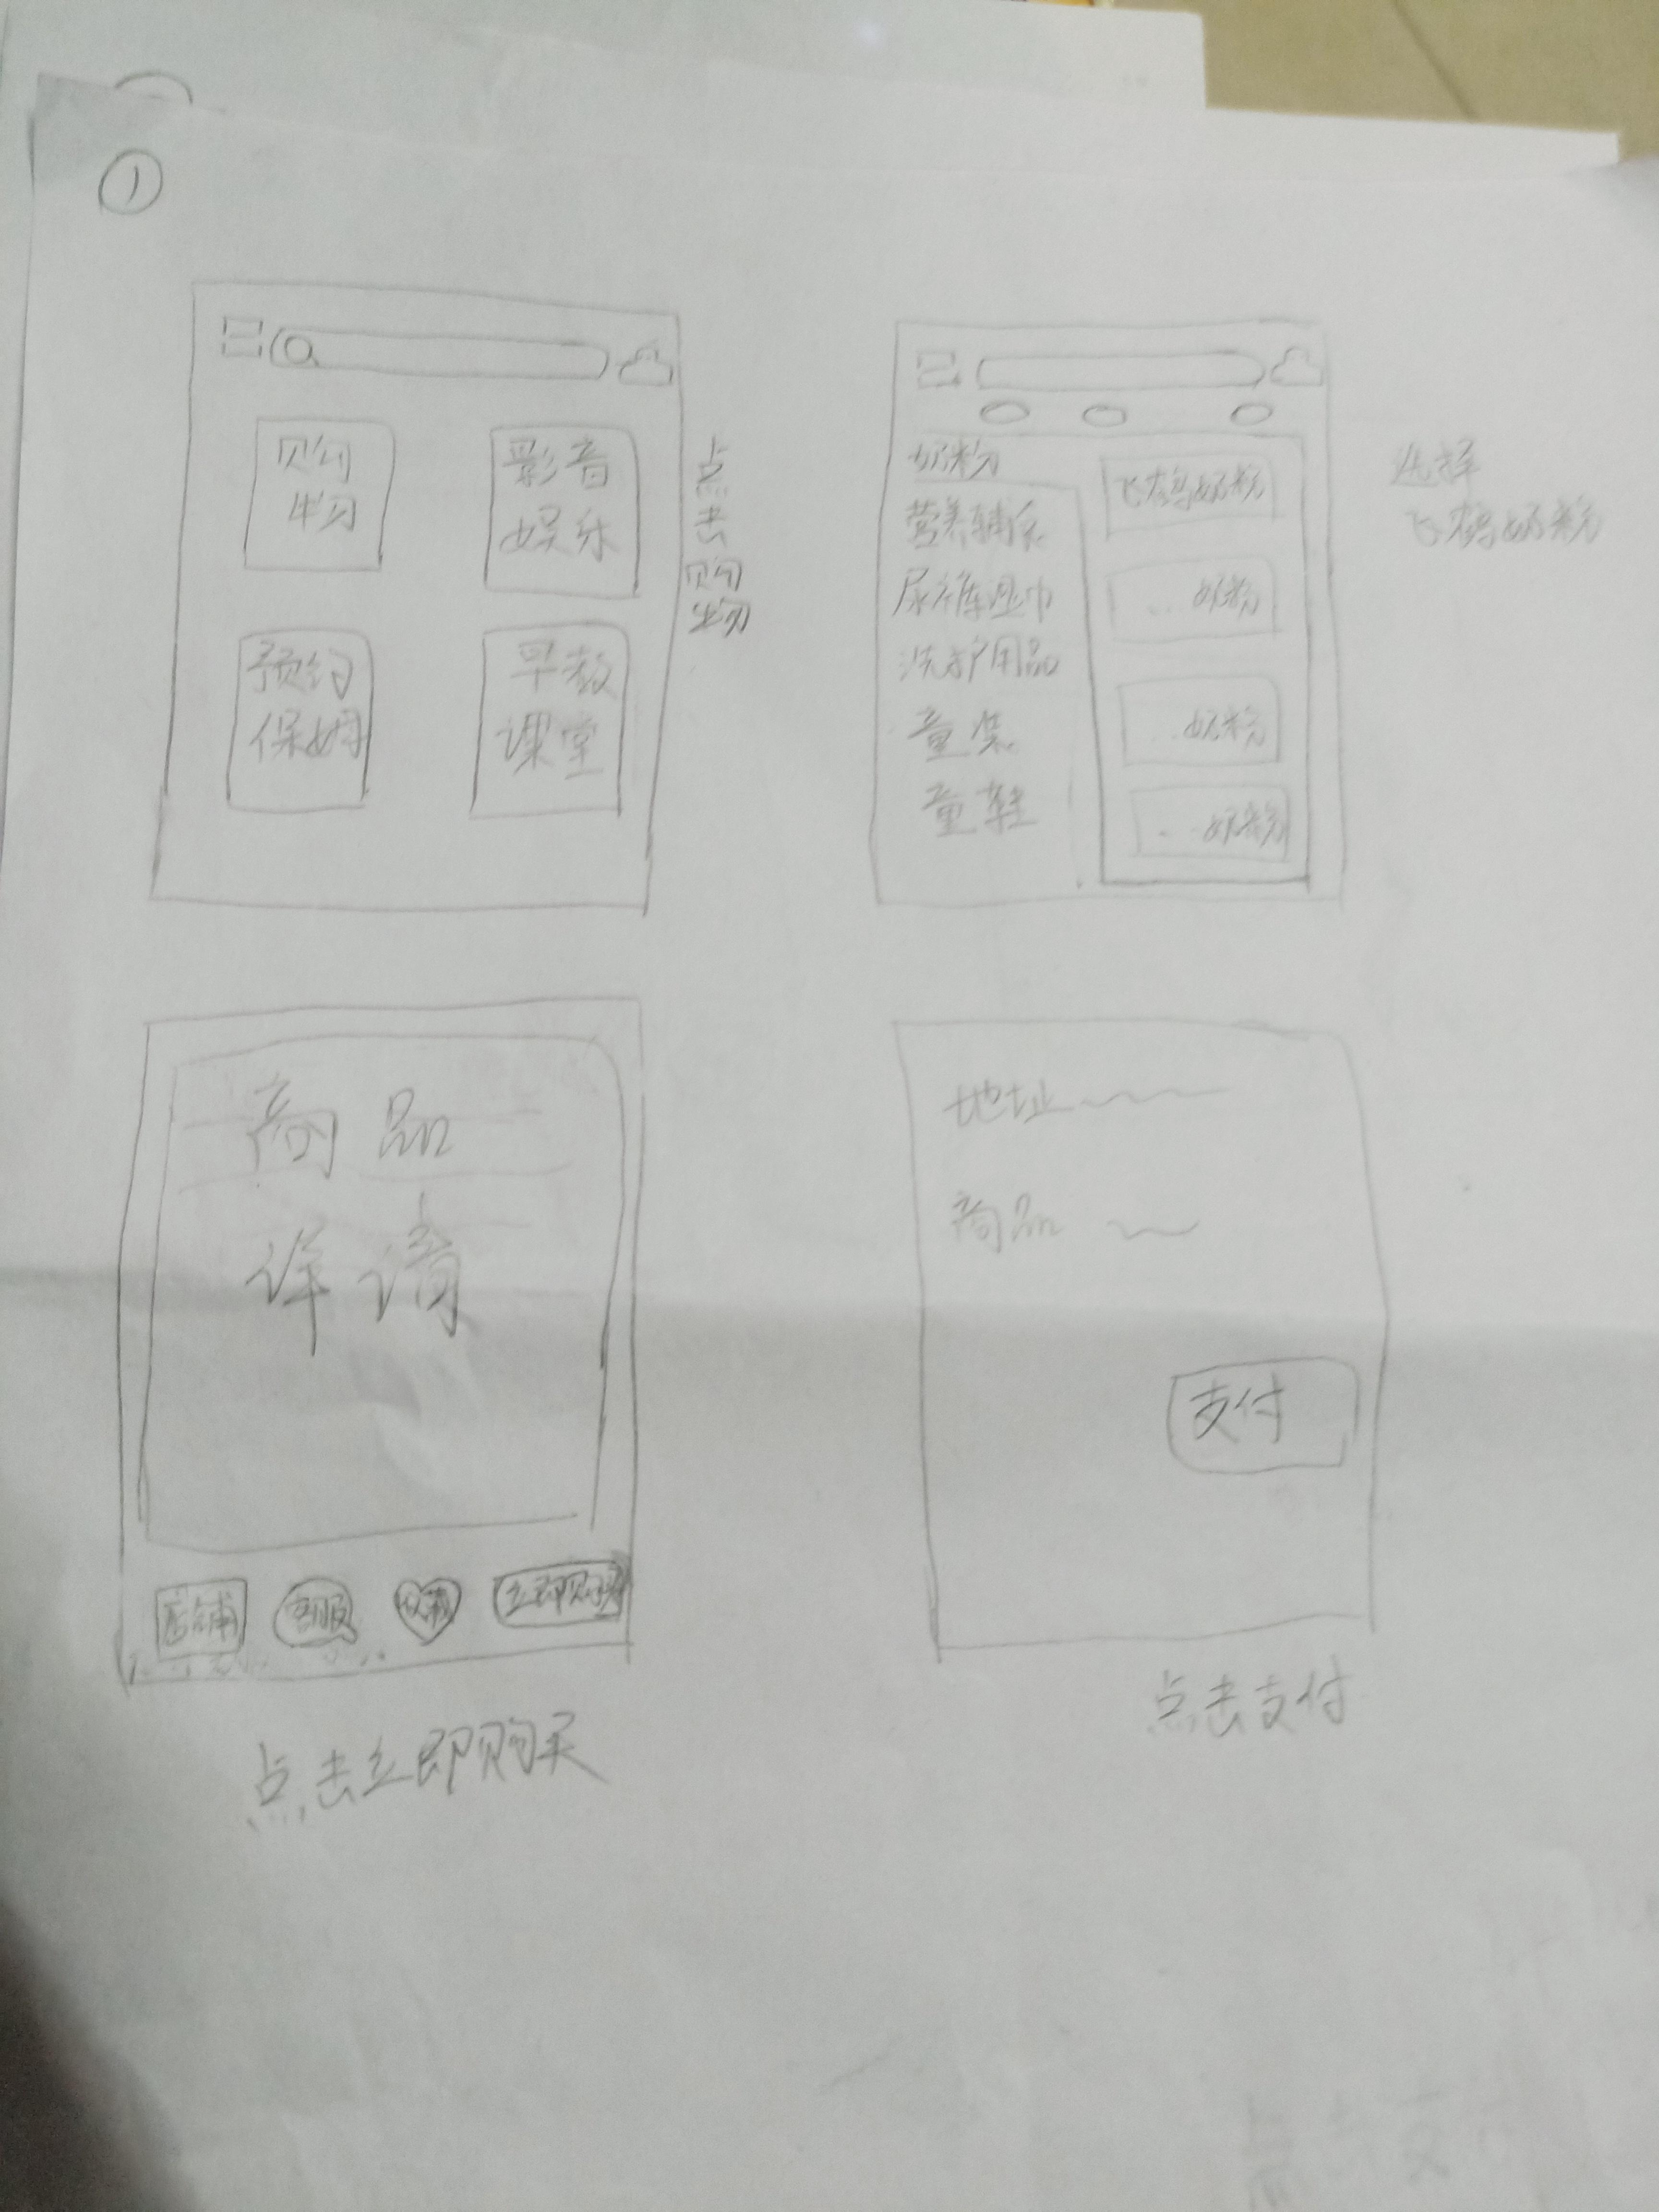 ①
购
物
影音
娱乐
预约
保姆
早教
课堂
点
击
购
物
奶粉
营养辅食
尿裤湿巾
洗护用品
童装
童鞋
飞鹤奶粉
...奶粉
...奶粉
...奶粉
选择
飞鹤奶粉
商品
详请
店铺
客服
收藏
立即购买
点击立即购买
地址
商品
支付
点击支付